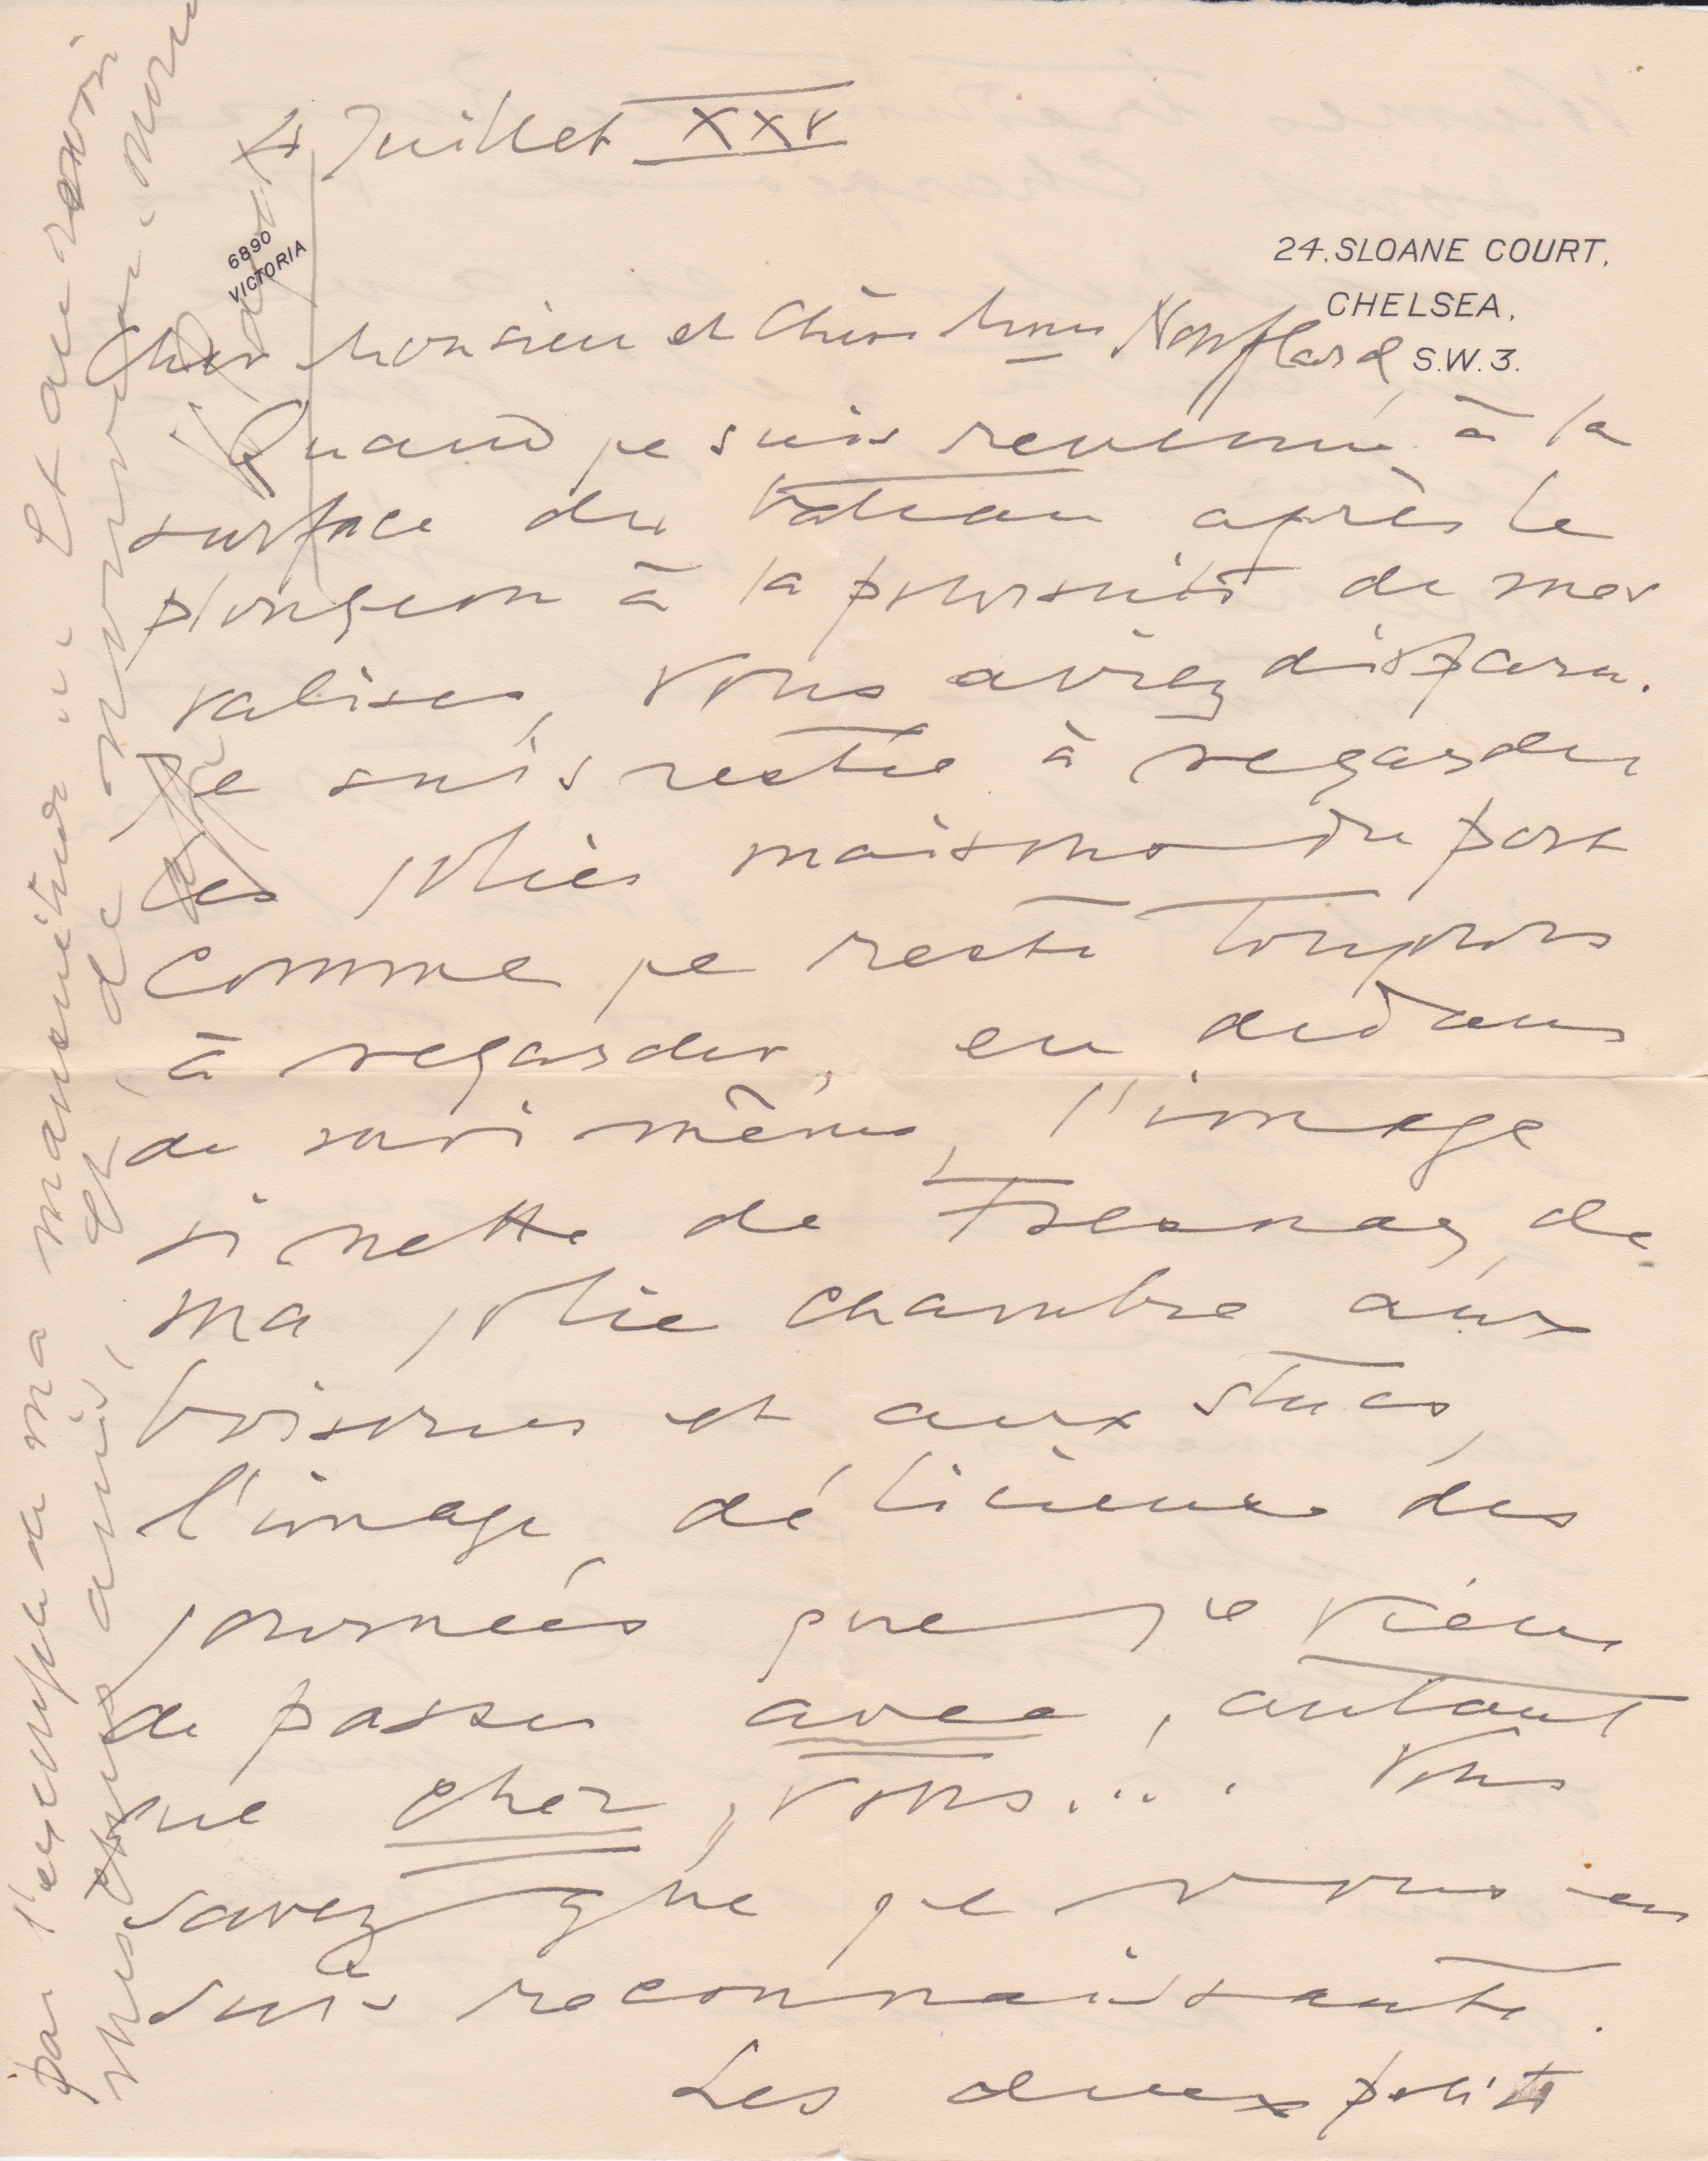 4 Juillet XXV
6890
VICTORIA
24. SLOANE COURT.
CHELSEA,
S.W.3.
Cher Monsieur et Chère Mme Noufflard,
Quand je suis revenue à la
surface du bateau après le
plongeon à la poursuite de mes
valises, vous aviez disparu.
Je suis restée à regarder
les jolies maisons du port
comme je reste toujours
à regarder, en dedans
de moi même, l'image
si nette de Fresnay, de
ma jolie chambre aux
boiseries et aux stucs,
l'image délicieuse des
journées que je viens
de passer avec, autant
que chez, vous.... Vous
savez que je vous en
suis reconnaissante.
Les deux petits
par l'exemple de ma
Et au revoir
mes chers amis, et de nouveau, merci